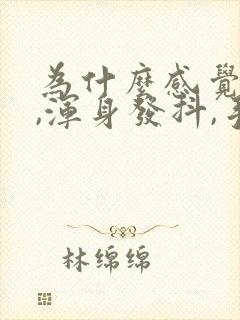 為什麼感覺
,渾身發抖,手
林绵绵